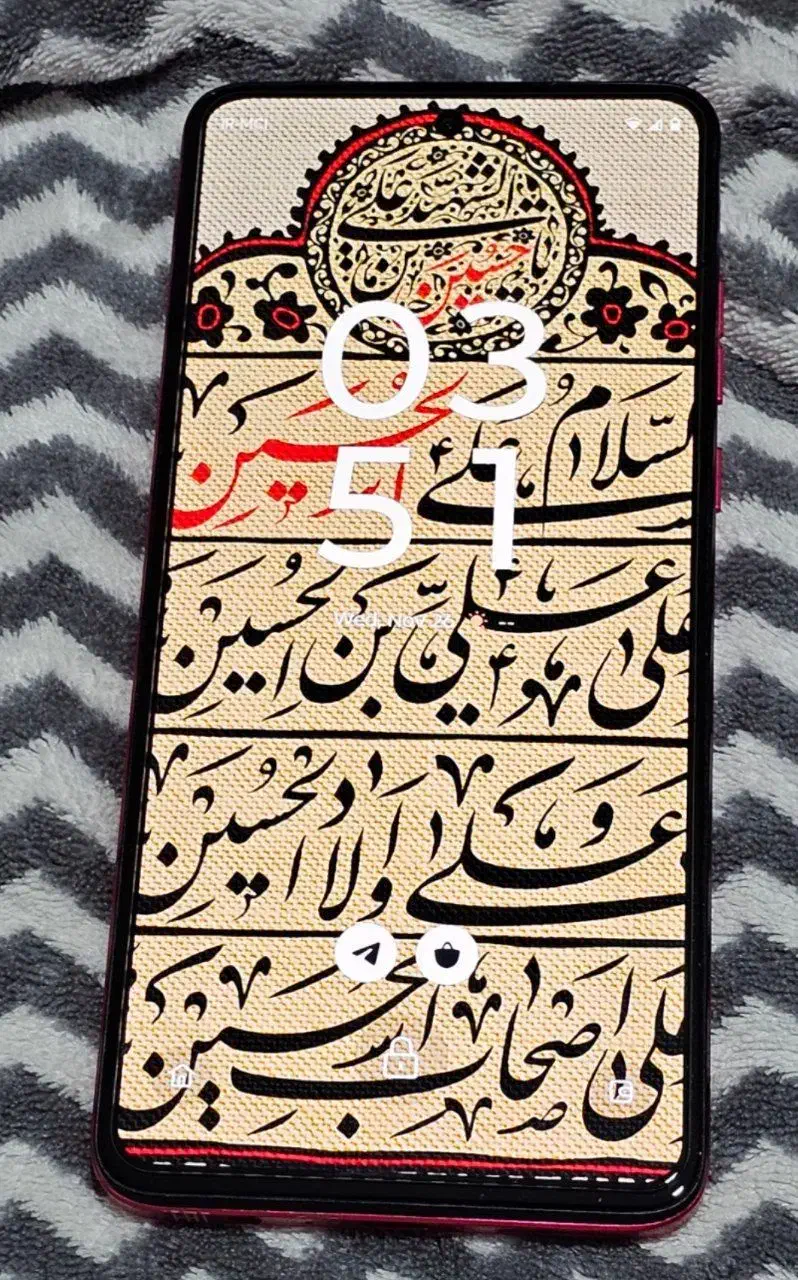 IR-MCI
یا حسین بن علی الشهید
03
السلام علی الحسین
51
و علی علی بن الحسین
Wed, Nov 26
و علی اولاد الحسین
و علی اصحاب الحسین